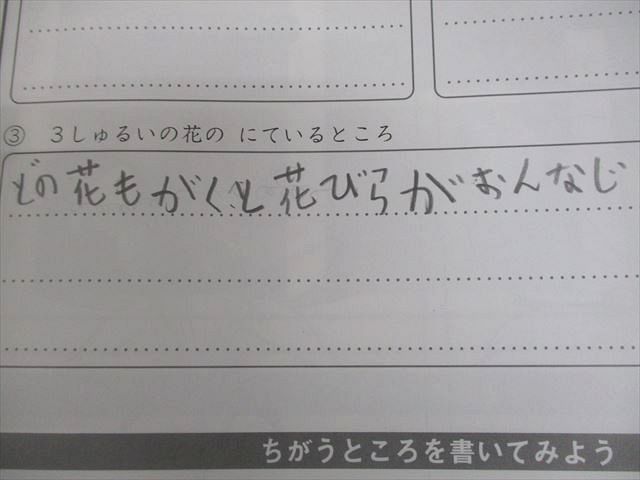 ③ 3しゅるいの花の にているところ
どの花もがくと花びらがおんなじ
ちがうところを書いてみよう